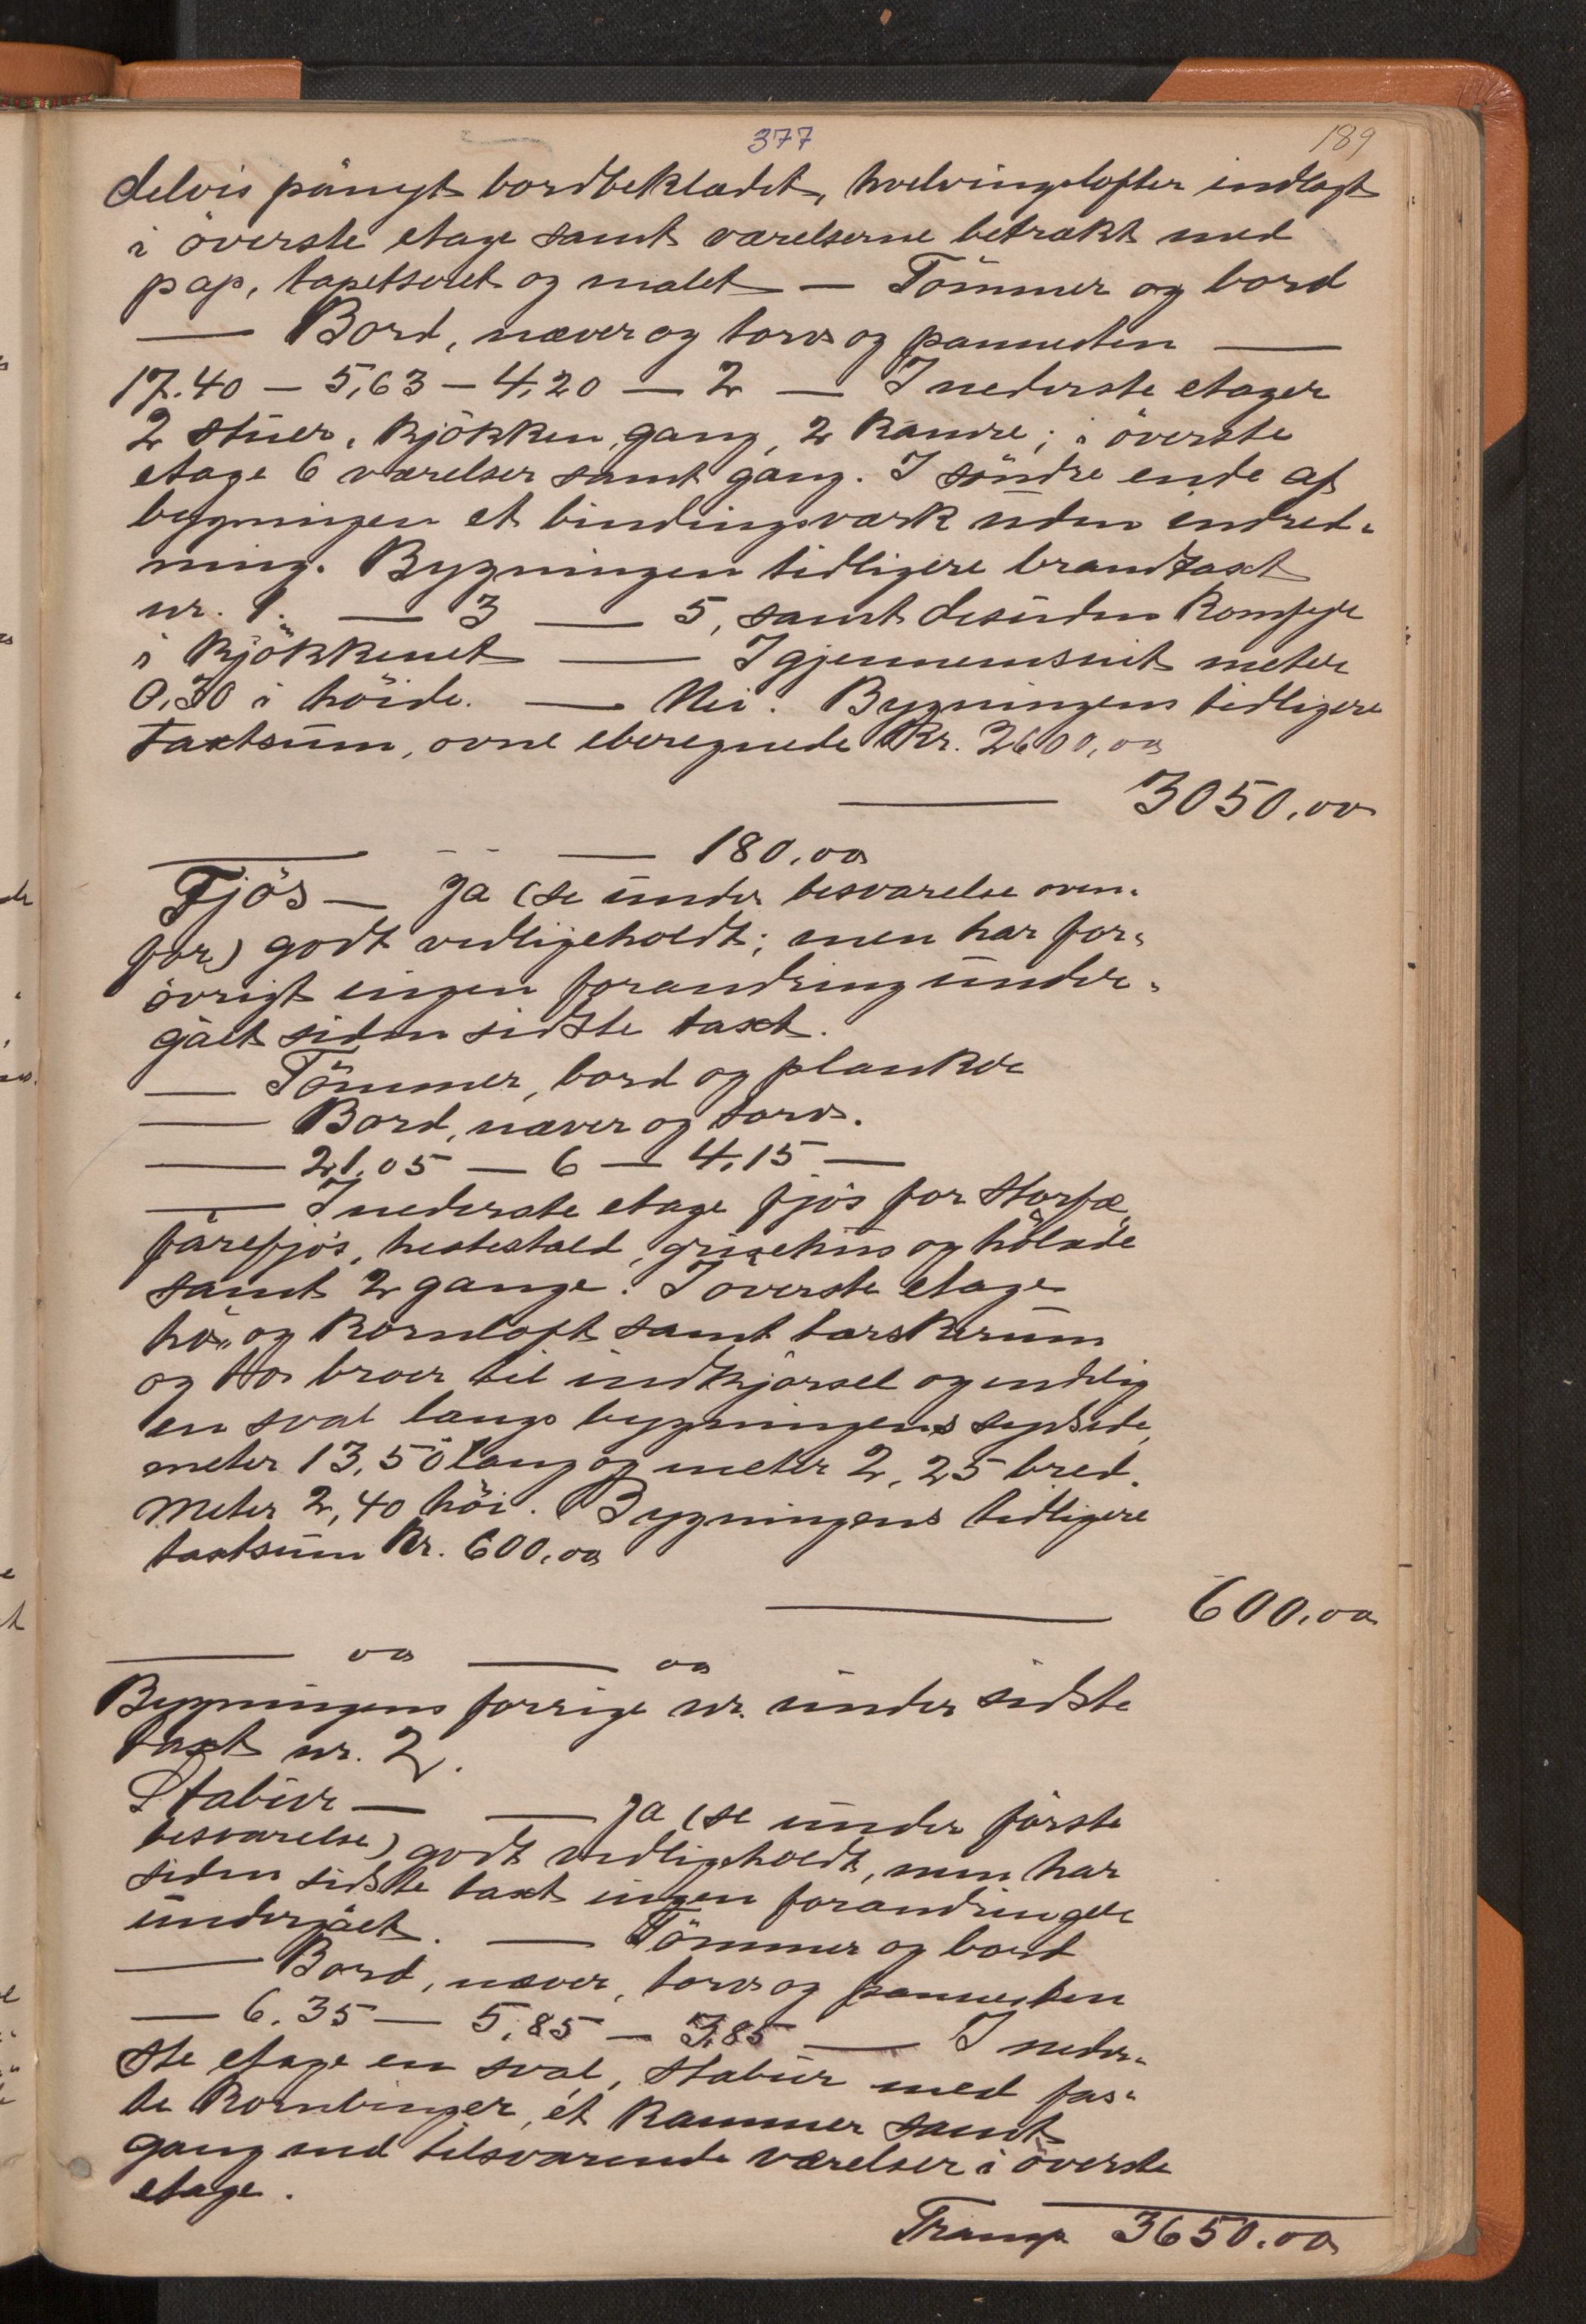 377
189
delvis pånyt bordbeklædt, hvelvingslofter indlagt
i överste etage samt værelserne betrakt med
pap, tapetseret og malet — Tömmer og bord
— Bord, næver og torv og pannesten —
17.40 — 5,63 — 4,20 — 2 — I nederste etager
2 stuer, kjökken, gang, 2 kamre; i överste
etage 6 værelser samt gang. I söndre ende af
bygningen et bindingsværk uden indred-
ning. Bygningen tidligere brandtaxt
nr. 1. — 3 — 5, samt desuden komfyr
i kjökkenet — I gjennemsnit meter
0,30 i höide. — Nei. Bygningens tidligere
taxtsum, ovne eberegnede Kr. 2600,00
— 3050,00
— - - — 180,00
Fjös — Ja (se under besvarelse oven-
for) godt vedligeholdt; men har for-
övrigt ingen forandring under-
gået siden sidste taxt.
— Tömmer, bord og planker
— Bord, næver og torv.
— 21,05 — 6 — 4,15 —
— I nederste etage fjös for storfæ,
fårefjös, hestestald, grisehus og hölade
samt 2 gange. I överste etage
hö- og kornloft samt tarskerum
og to broer til indkjörsel og endelig
en sval langs bygningens sydside,
meter 13,50 lang og meter 2,25 bred,
meter 2,40 höi. Bygningens tidligere
taxtsum Kr. 600,00
— 600,00
— 00 — 00
Bygningens forrige nr. under sidste
taxt nr. 2.
Stabur — — Ja (se under förste
besvarelse) godt vedligeholdt, men har
siden sidste taxt ingen forandringer
undergået. — Tömmer og bord
— Bord, næver, torv og pannesten
— 6.35 — 5,85 — 3,85 — I neder-
ste etage en sval, stabur med fas-
te kornbinger, ét kammer samt
gang med tilsvarende værelser i överste
etage.
Transp. 3650.00